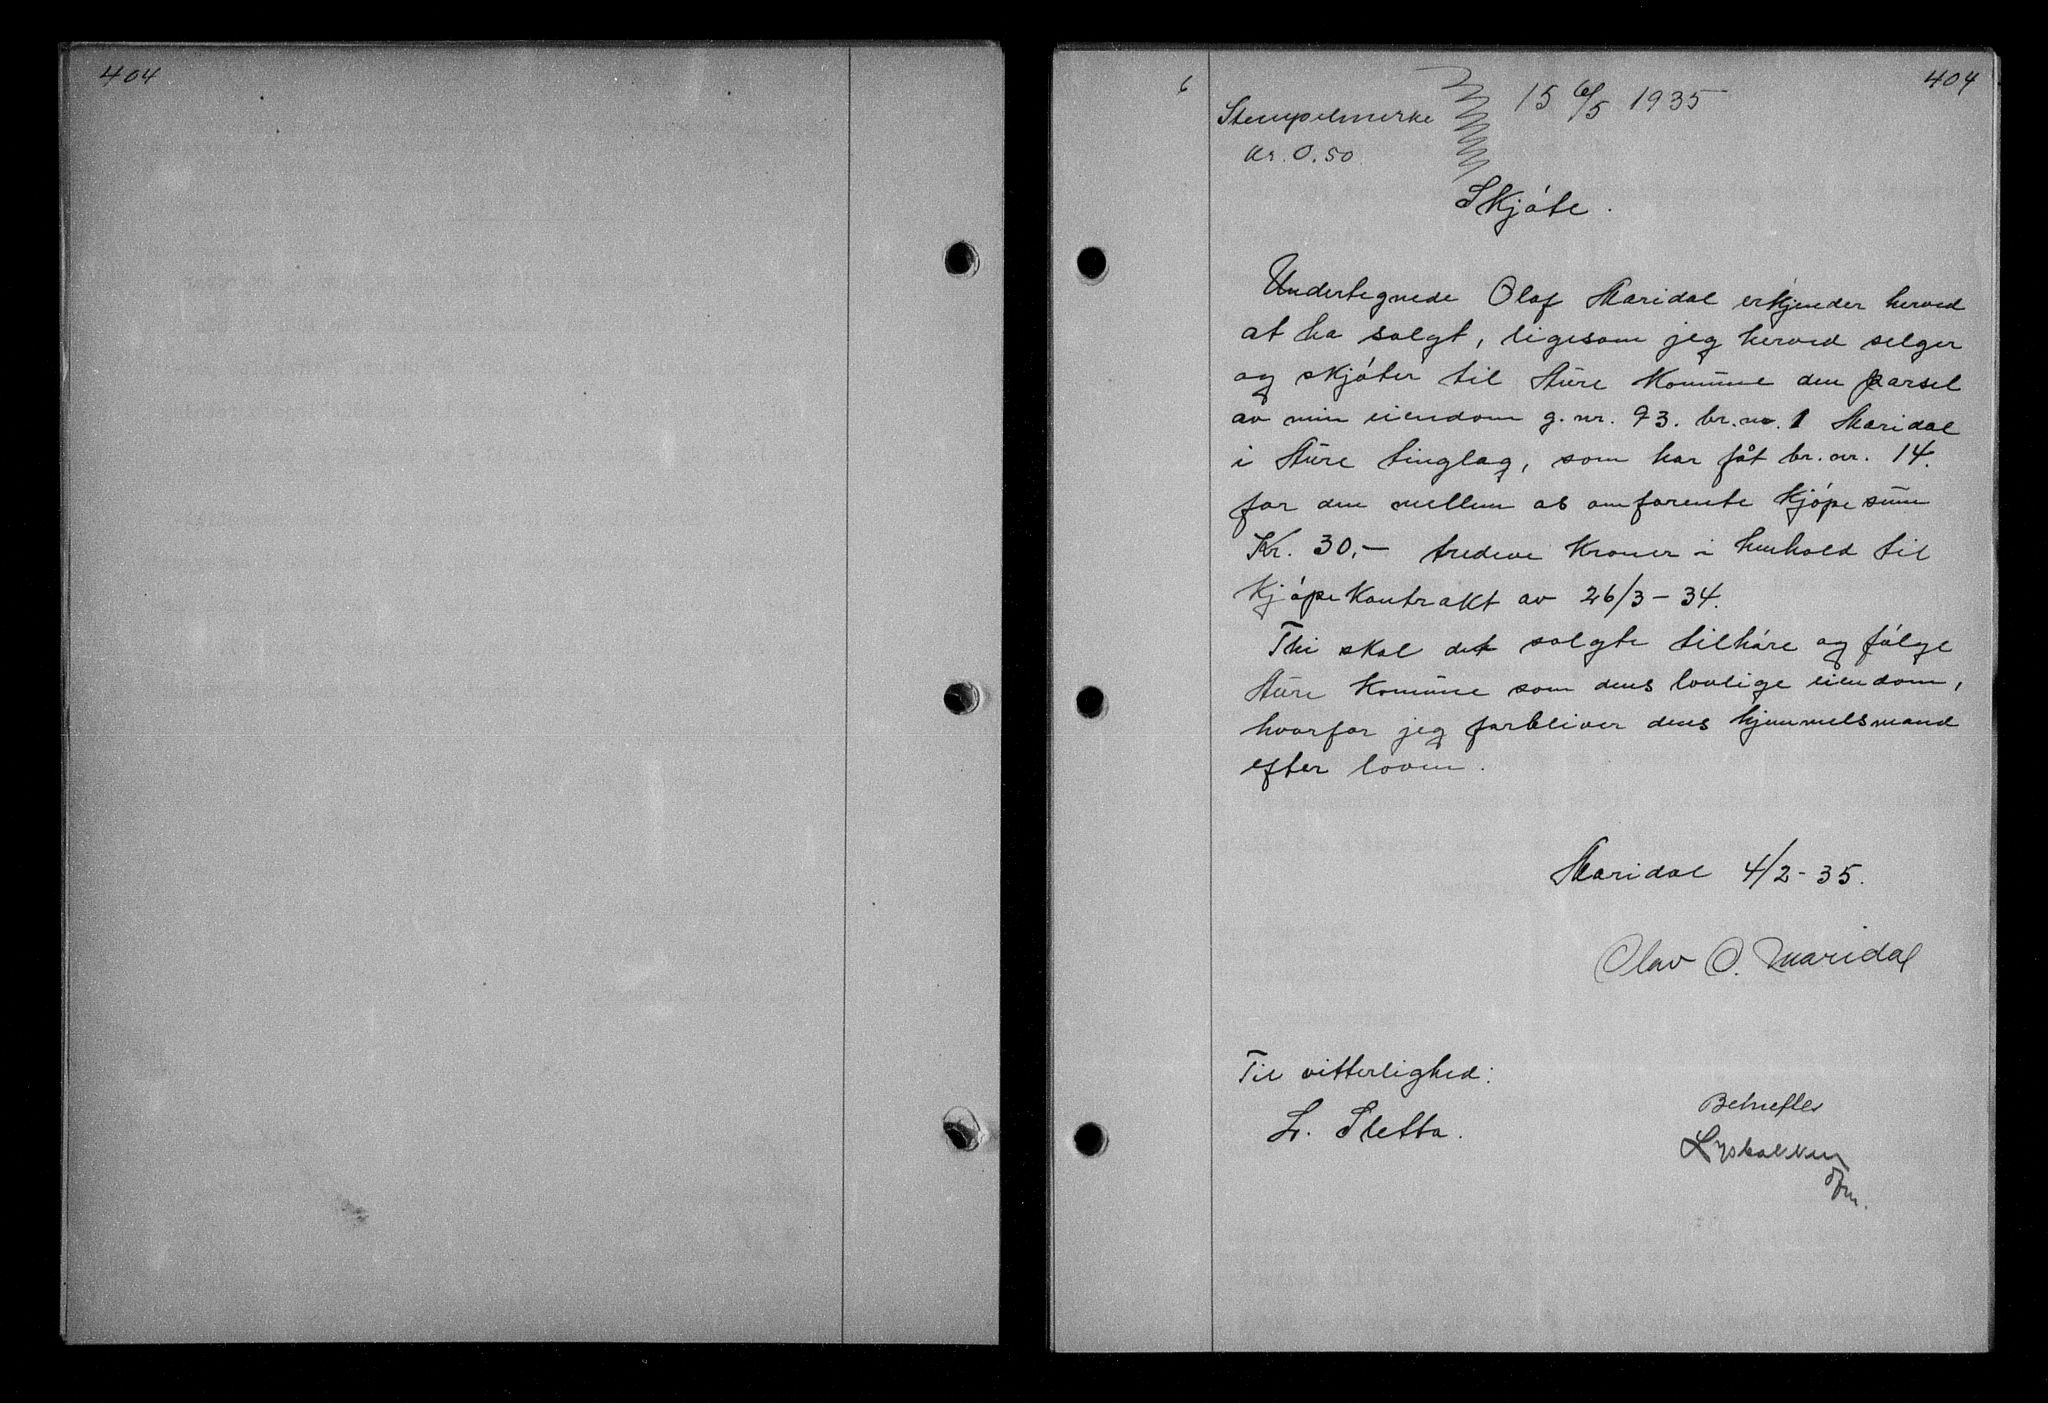 404
6
404
15 6/5 1935
Stempelmerke
kr. 0.50
Skjøte.
Undertegnede Olaf Maridal erkjender herved
at ha solgt, ligesom jeg herved selger
og skjøter til Kommune den parsel
av min eiendom g. nr. 93. br. nr. 1 Maridal
i tinglag, som har fåt br. nr. 14.
for den mellem os omforente kjøpesum
Kr. 30,- tredeve Kroner i henhold til
Kjøpekontrakt av 26/3-34.
Thi skal det solgte tilhøre og følge
Kommune som dens lovlige eiendom,
hvorfor jeg forbliver dens hjemmelsmand
efter loven.
Maridal 4/2-35.
Olav O. Maridal
Til vitterlighed:
L. Sletta.
Bekreftes
Lysbakken